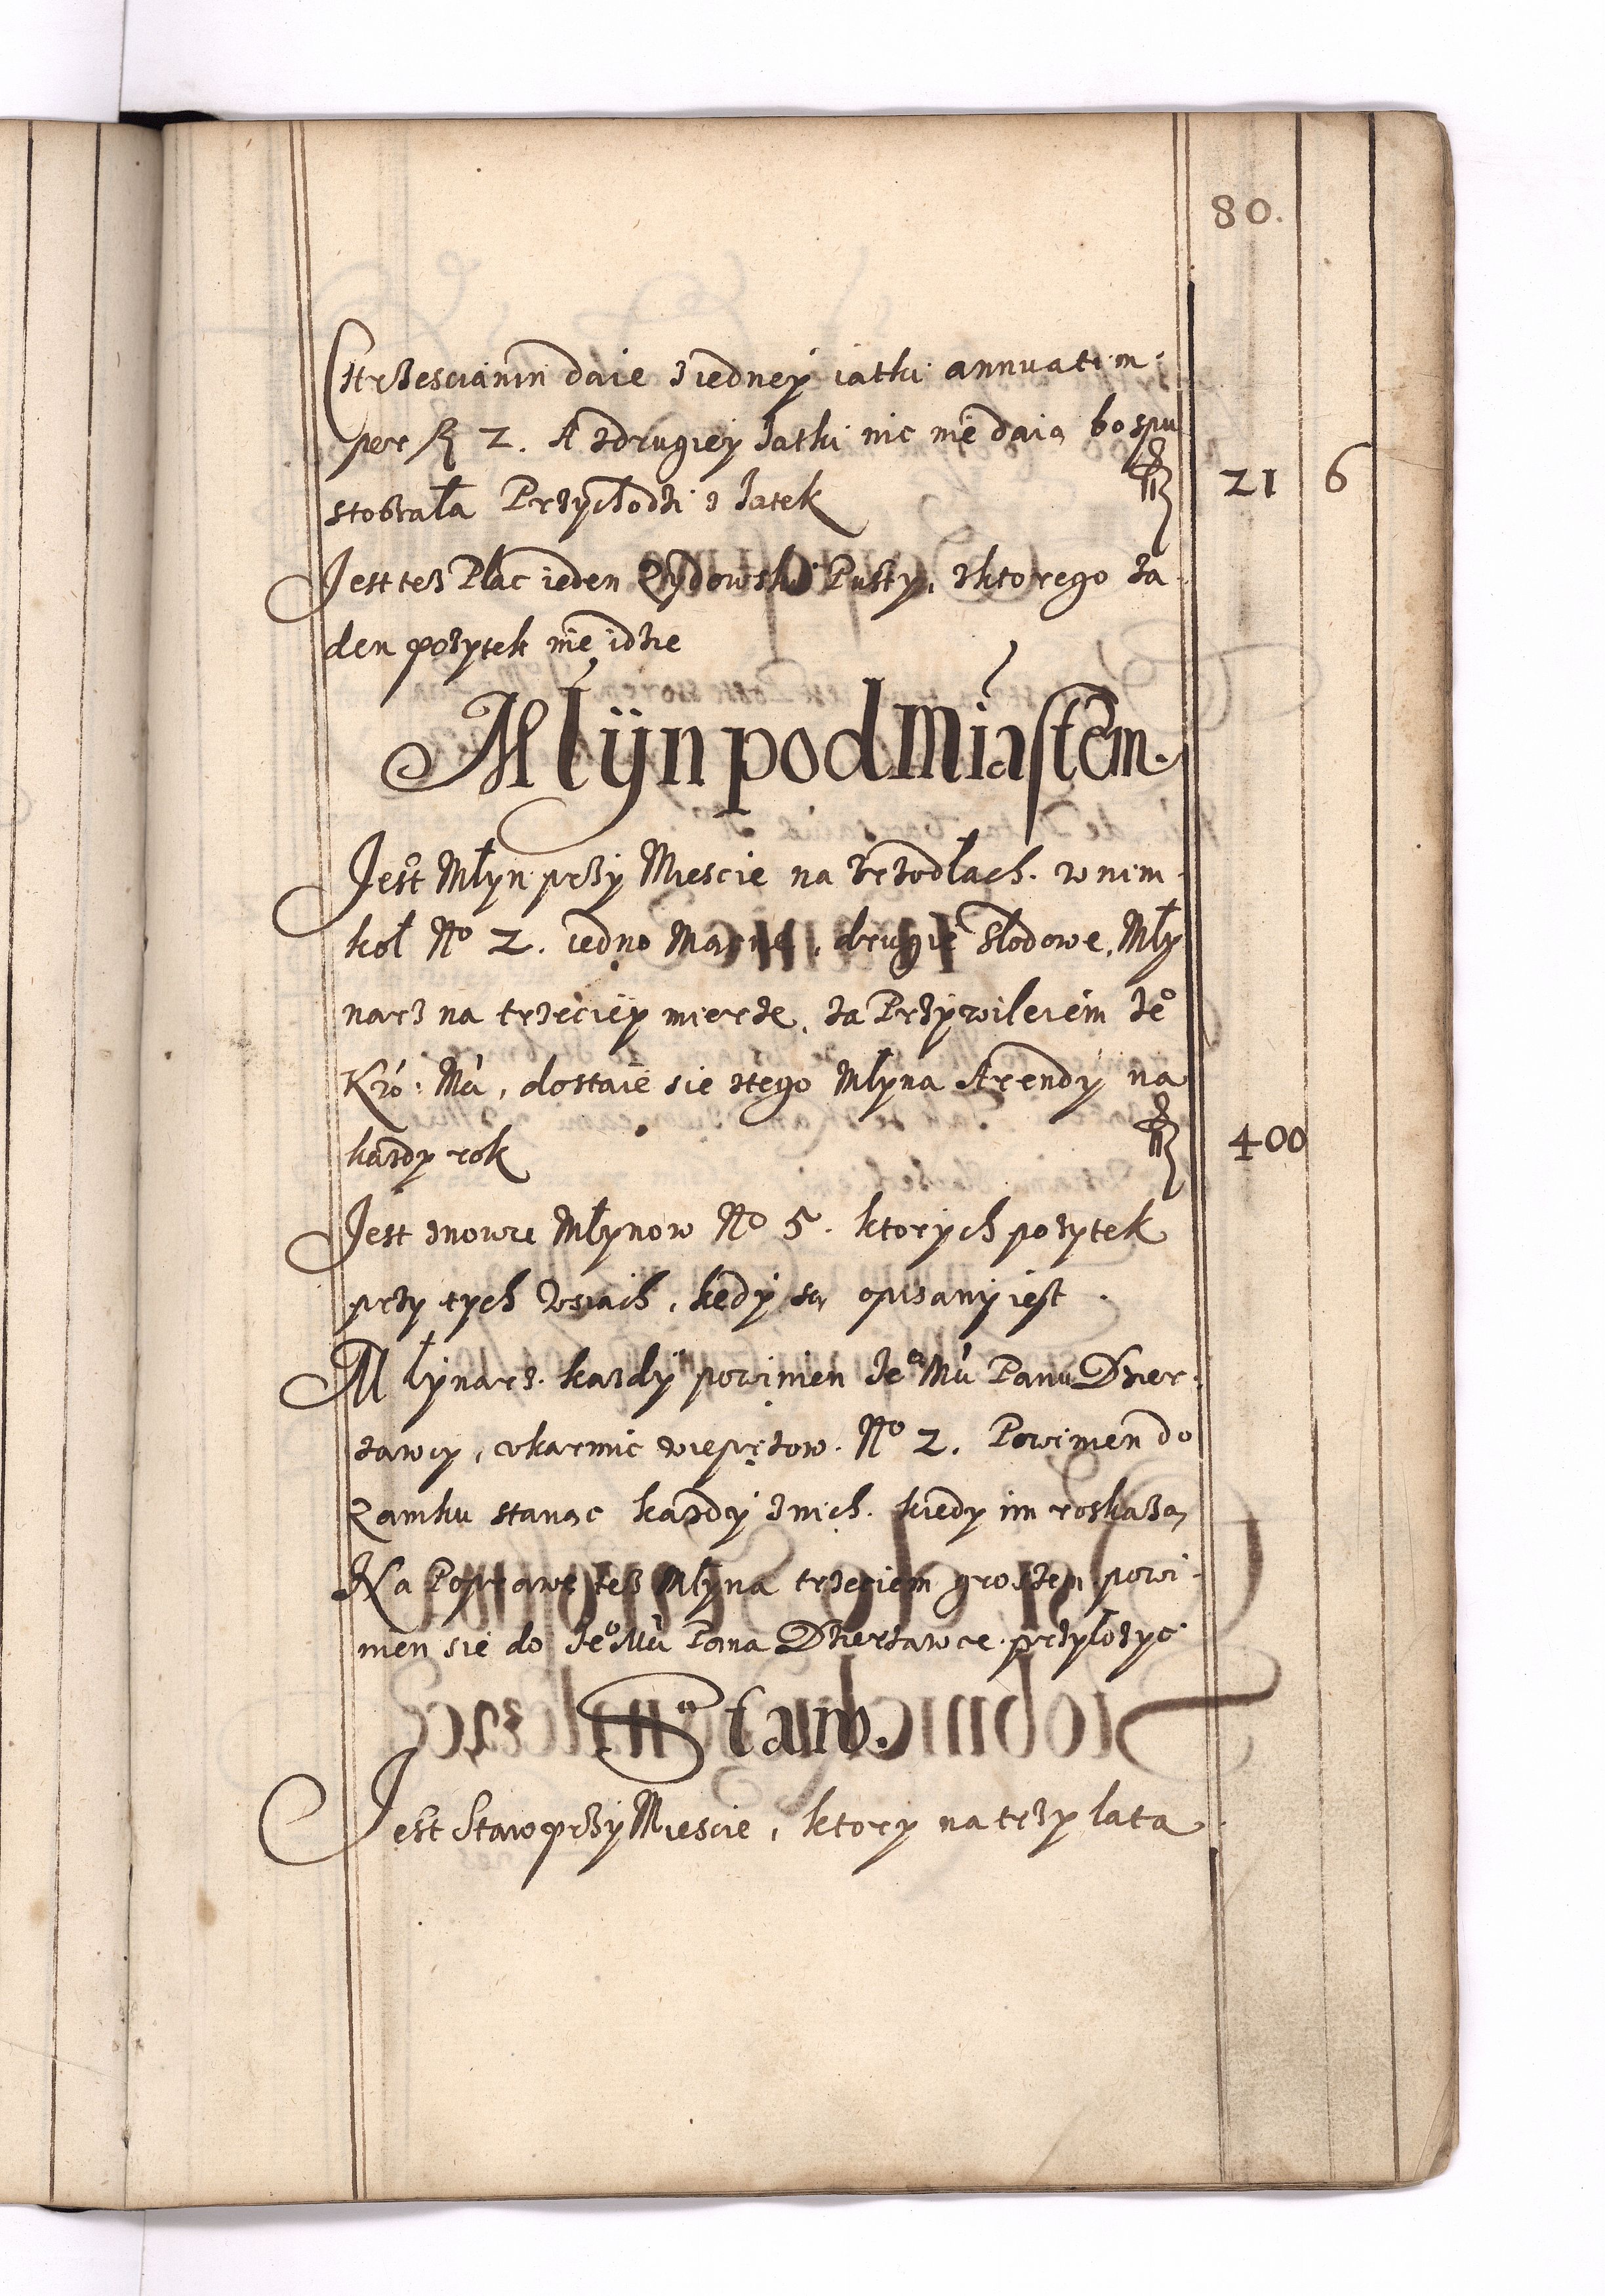 80.
Chrzescianin daie z iedney iatki annuatim
per fl 2. A z drugiey Jatki nic nie daią bo spu
stoszała Przychodzi z Jatek fl 21 6
Jest tesz Plac ieden Zydowski Pusty, z ktorego za
den pożytek nie idzie
Młyn pod Miastem.
Jest Młyn przy Miescie na Zrzodłach. w nim
koł No 2. iedno Mączne, drugie Słodowe. Mły
narz na trzeciey mierze, za Przywileiem Jeo
Kró: Mći, dostaie sie z tego Młyna Arendy na
kazdy rok fl 400
Jest znowu Młynow No 5. ktorych pożytek
przy tych Wsiach, kędy są opisany iest.
Młynarz kazdy powinien Jeo Mći Panu Dzier
zawcy, vkarmic wieprzow. No 2. Powinien do
Zamku stanąc kazdy z nich. kiedy im roskazą
Na Poprawę tesz Młyna trzeciem groszem powi
nien sie do Jeo Mći Pana Dzierzawce przyłozyc
Staw.
Jest Staw przy Miescie, ktory na trzy lata